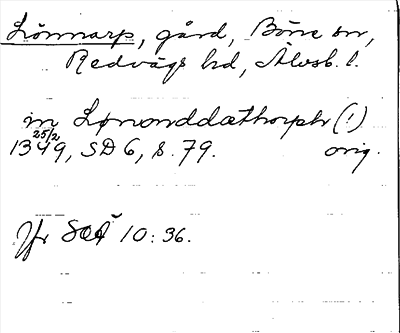 Lönnarp, gård, Böne sn,
Redvägs hd, Älvsb. l.
in Lønonddæthorphr (!)
25/2 1349, SD 6, s. 79. orig.
Jfr SOÄ 10: 36.